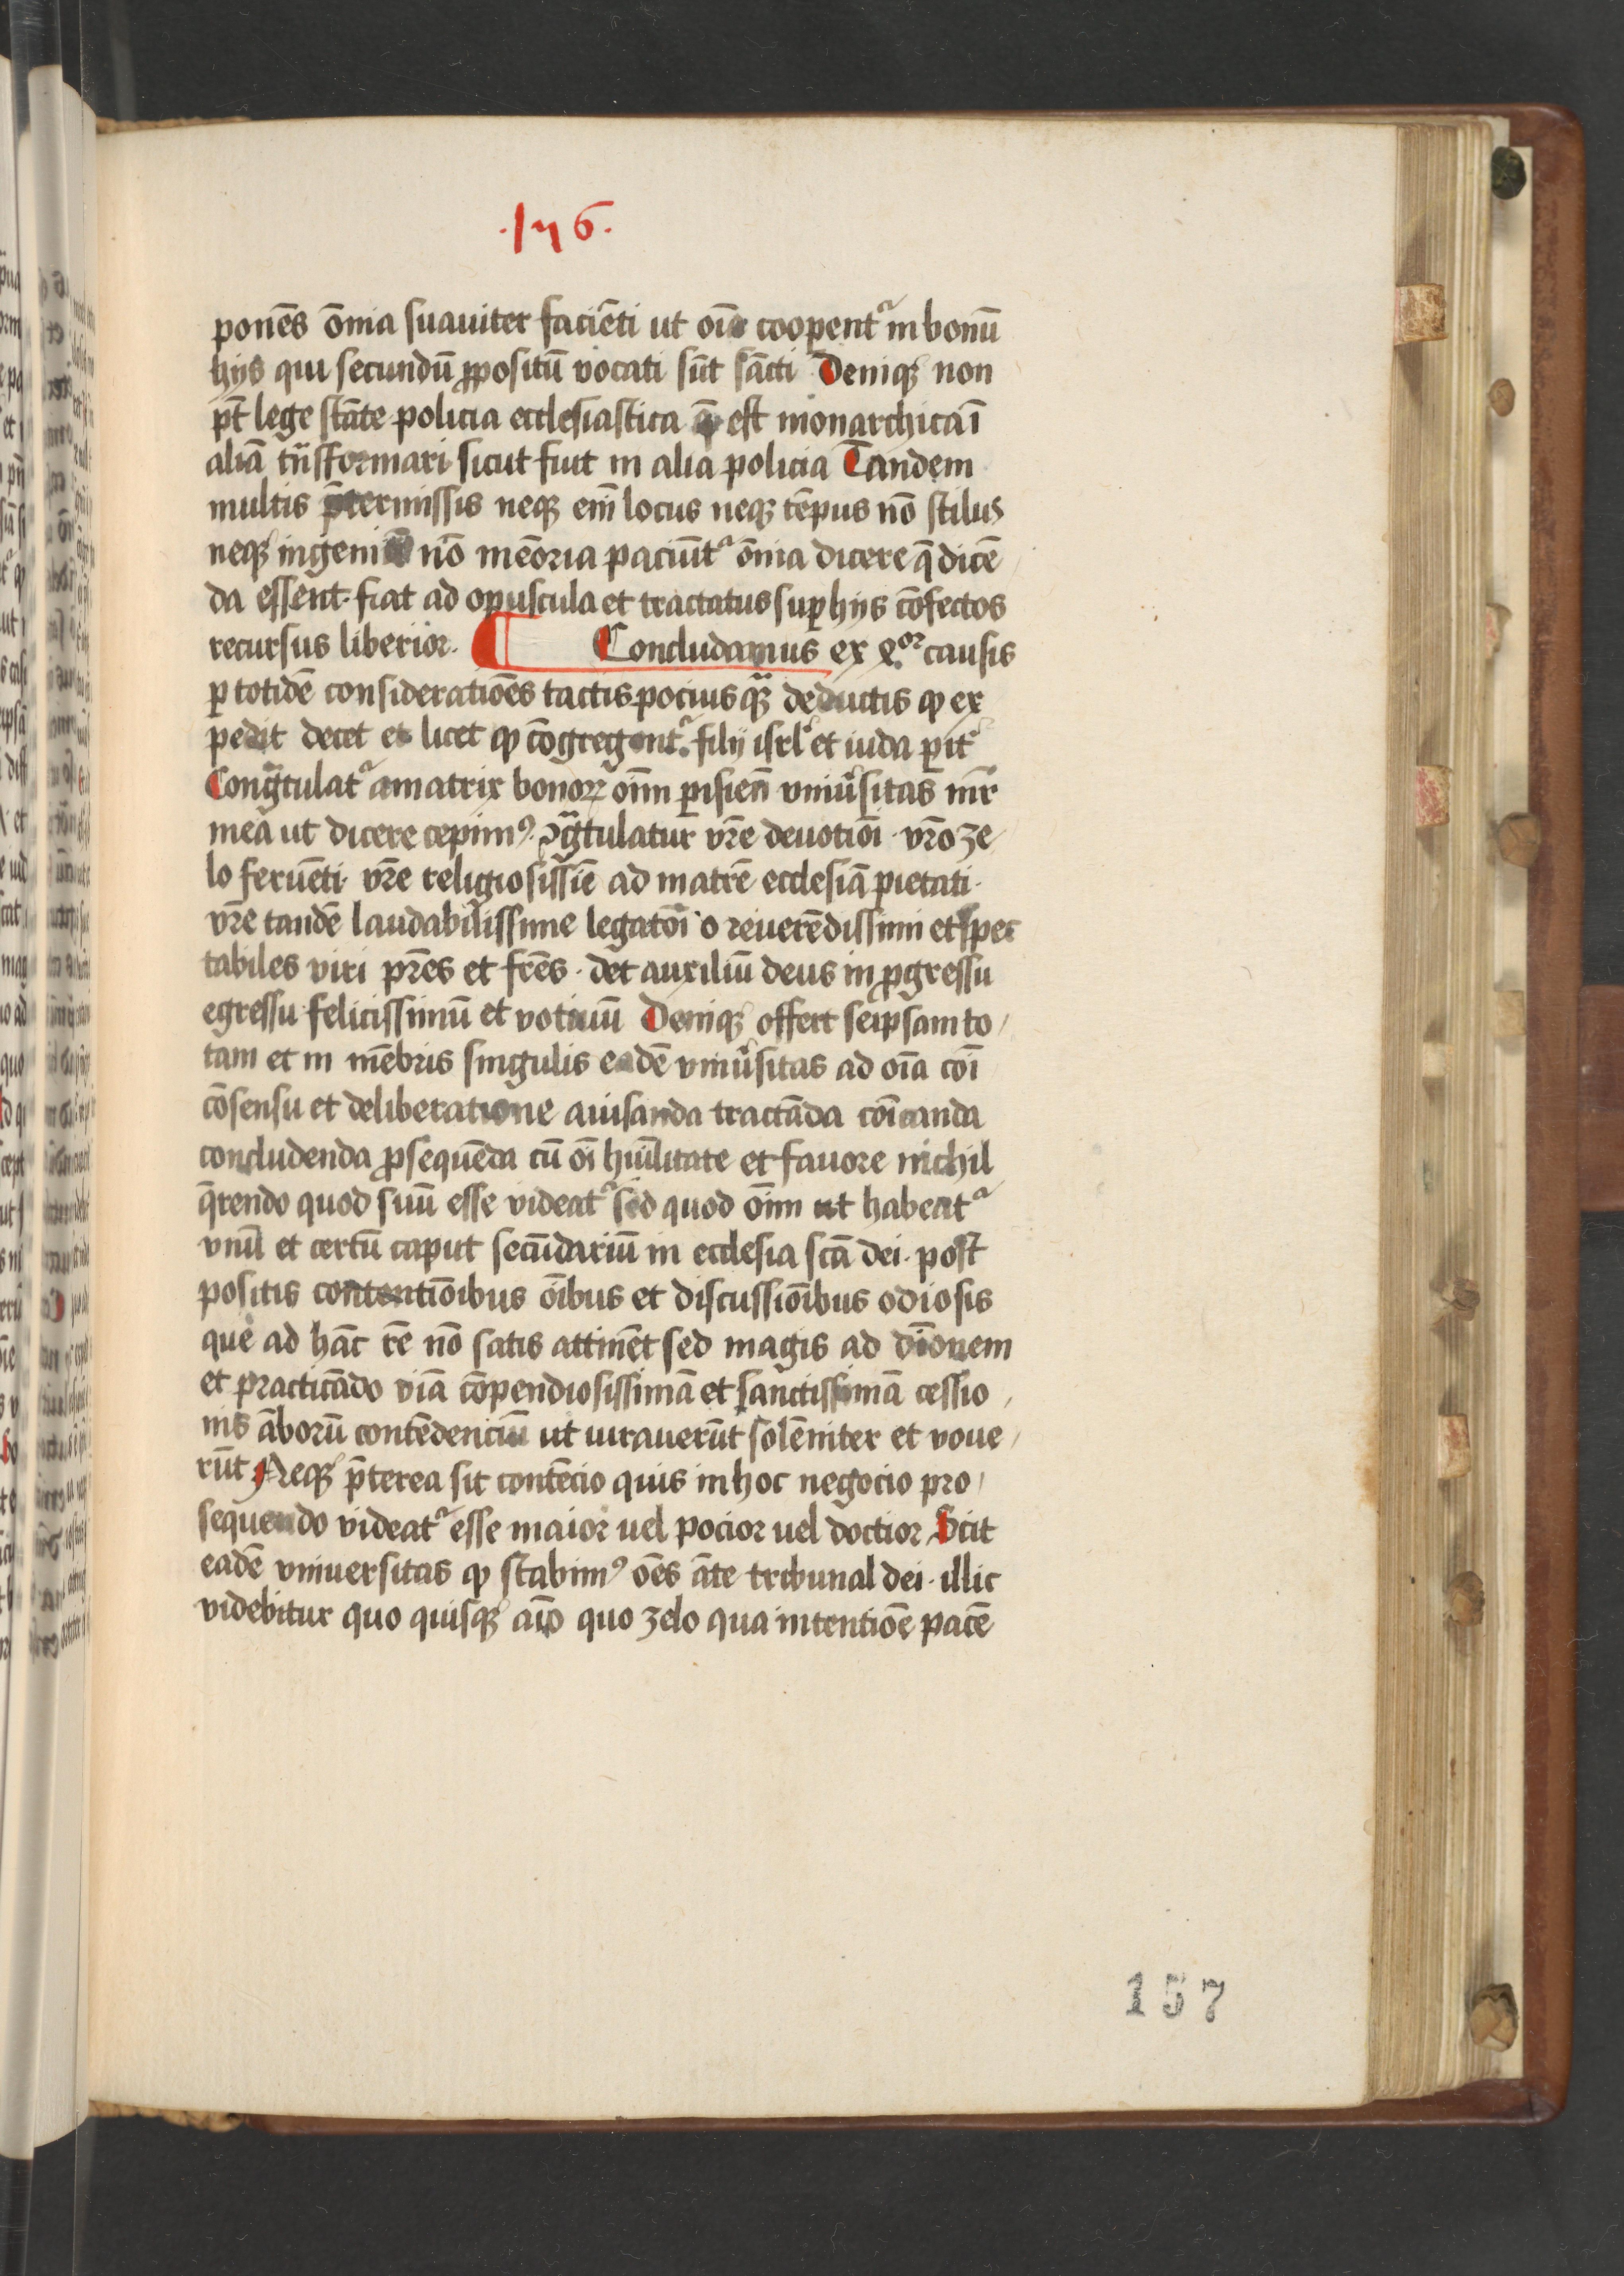 .156.
ponēs om̄ia suauiter faciēti ut oīa coopent᷑ in bonū
hijs qui secundū ꝓpositū vocati sūt sācti Deniqꝫ non
pt̄ lege stāte policia ecclesiastica q̄ est monarchica ī
aliā trāsformari sicut fiut in alia policia Tandem
multis p̄termissis neqꝫ em̄ locus neqꝫ tēpus nō stilus
neqꝫ ingeniū nō mēoria paciūt᷑ om̄ia dicere q̄ dicē
da essent· fiat ad opuscula et tractatus suꝑ hijs cōfectos
recursus liberior· Concludamus ex 4or causis
ꝑ totidē consideratiōes tactis pocius qꝫ deductis ꝙ ex
pedit decet et licet ꝙ cōgregent᷑ filij isrl̄ et iuda ꝑit᷑
Congͣtulat᷑ amatrix bonoꝝ oīm ꝑisień vniūsitas mr̄
mea ut dicere cepimꝰ· ꝯgͣtulatur vr̄e deuotiōi· vr̄o ze
lo feruēti· vr̄e religiosissīe ad matrē ecclesiā pietati·
vr̄e tandē laudabilissime legatōi o reuerēdissimi et spec
tabiles viri pr̄es et fr̄es· det auxiliū deus in ꝓgressu
egressu felicissimū et votiuū Deniqꝫ offert seip̄sam to
tam et in mēbris singulis eadē vniūsitas ad oīa cōi
cōsensu et deliberatione auisanda tractāda cōicanda
concludenda ꝓsequēda cū oī hūilitate et fauore nichil
q̄rendo quod suū esse videat᷑ sed quod oīm ut habeat᷑
vnū et certū caput secūdariū in ecclesia scā dei· post
positis contentiōibus oībus et discussiōibus odiosis
que ad hāc rē nō satis attinēt sed magis ad dīonem
et practicādo viā cōpendiosissimā et sanctissimā cessio
nis āborū contēdenciū ut iurauerūt solēniter et voue
rūt Neqꝫ p̄terea sit contēcio quis in hoc negocio pro
sequendo videat᷑ esse maior uel pocior uel doctior Scit
eadē vniuersitas ꝙ stabimꝰ oēs āte tribunal dei· illic
videbitur quo quisqꝫ aīo quo zelo qua intentiōe pacē
157